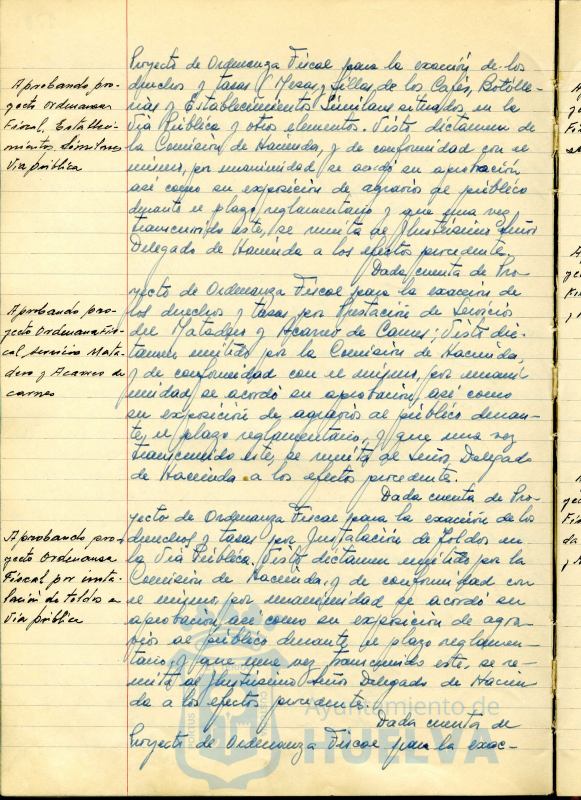 Proyecto de Ordenanza Fiscal para la exacción de los
derechos y tasas (Mesas y Sillas de los Cafés, Botille-
rias y Establecimientos Similares situados, en la
Via Pública y otros elementos. Visto dictamen de
la Comisión de Hacienda, y de conformidad con el
mismo, por unanimidad se acordó su aprobación
así como su exposición de agravios al público
durante el plazo reglamentario y que una vez
transcurrido este, se remita al Ilustrisimo Señor
Delegado de Hacienda a los efectos procedente.
Dada cuenta de Pro-
yecto de Ordenanza Fiscal para la exacción de
los derechos y tasas por Prestación de Servicios
del Matadero y Acarreo de Carnes; Visto dic-
tamen emitido por la Comisión de Hacienda,
y de conformidad con el mismo, por unani-
midad se acordó su aprobación, así como
su exposición de agravios al público duran-
te, el plazo reglamentario, y que una vez
transcurrido este, se remita al Señor Delegado
de Hacienda a los efectos procedente.
Dada cuenta de Pro-
yecto de Ordenanza Fiscal para la exacción de los
derechos y tasas por Instalación de Toldos en
la Via Pública. Visto dictamen emitido por la
Comisión de Hacienda, y de conformidad con
el mismo, por unanimidad se acordó su
aprobación, así como su exposición de agra-
vios al público durante el plazo reglamen-
tario, y que una vez transcurrido este, se re-
mita al Ilustrisimo Señor Delegado de Hacien
da a los efectos procedente.
Dada cuenta de
Proyecto de Ordenanza Fiscal para la exac-
Aprobando pro-
yecto ordenanza
Fiscal, Estableci-
mientos Similares
Via pública
Aprobando pro-
yecto Ordenanza Fis-
cal, servicio Mata-
dero y Acarreo de
carnes
Aprobando pro-
yecto Ordenanza
Fiscal por insta-
lación de toldos en
Via pública
Ayuntamiento de
HUELVA